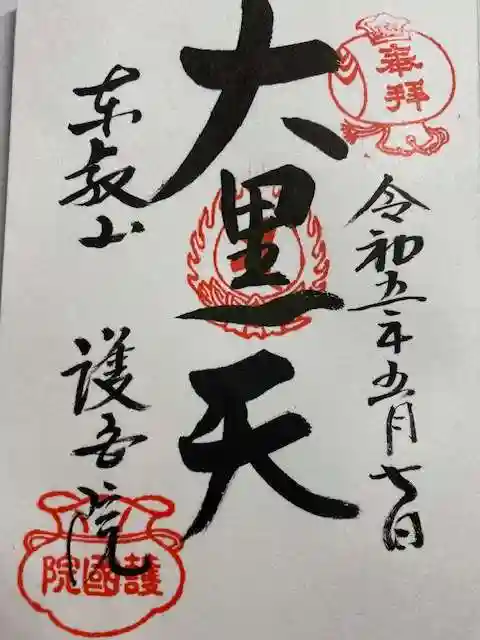 奉拝
令和五年五月七日
大黒天
東叡山 護国院
護國院